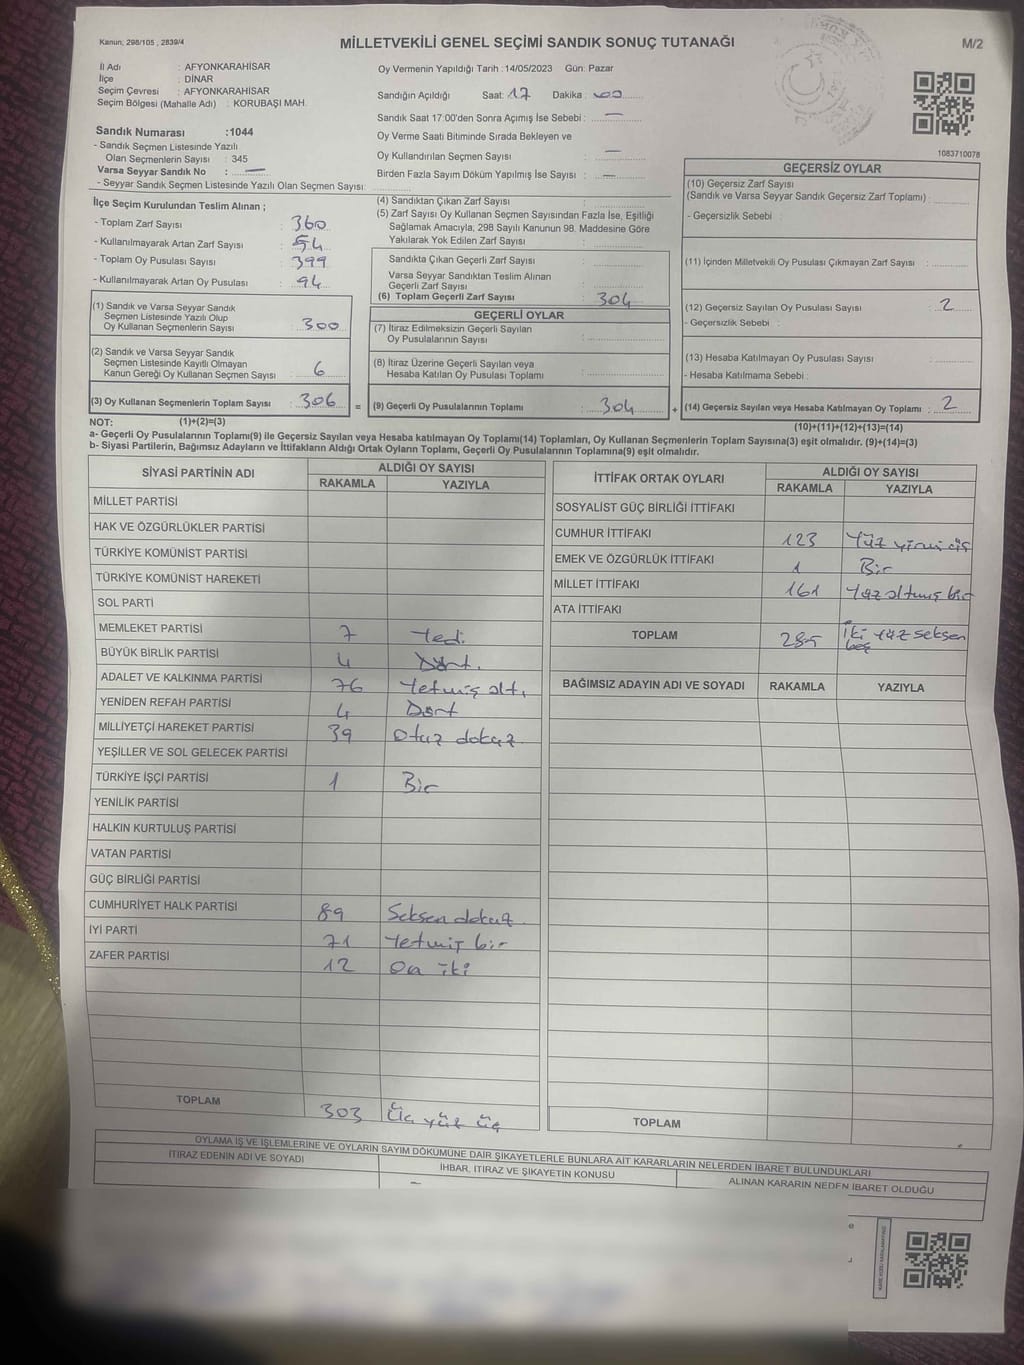 Kanun, 298/105 , 2839/4
MİLLETVEKİLİ GENEL SEÇİMİ SANDIK SONUÇ TUTANAĞI
M/2
İl Adı : AFYONKARAHİSAR
İlçe : DİNAR
Seçim Çevresi : AFYONKARAHİSAR
Seçim Bölgesi (Mahalle Adı) : KORUBAŞI MAH.
Sandık Numarası :1044
- Sandık Seçmen Listesinde Yazılı
Olan Seçmenlerin Sayısı : 345
Varsa Seyyar Sandık No : —
- Seyyar Sandık Seçmen Listesinde Yazılı Olan Seçmen Sayısı:
Oy Vermenin Yapıldığı Tarih :14/05/2023 Gün: Pazar
Sandığın Açıldığı Saat: 17 Dakika : 00
Sandık Saat 17:00'den Sonra Açımış İse Sebebi : —
Oy Verme Saati Bitiminde Sırada Bekleyen ve
Oy Kullandırılan Seçmen Sayısı : —
Birden Fazla Sayım Döküm Yapılmış İse Sayısı : —
1083710078
İlçe Seçim Kurulundan Teslim Alınan ;
- Toplam Zarf Sayısı : 360
- Kullanılmayarak Artan Zarf Sayısı : 54
- Toplam Oy Pusulası Sayısı : 399
- Kullanılmayarak Artan Oy Pusulası : 94
(1) Sandık ve Varsa Seyyar Sandık
Seçmen Listesinde Yazılı Olup
Oy Kullanan Seçmenlerin Sayısı : 300
(2) Sandık ve Varsa Seyyar Sandık
Seçmen Listesinde Kayıtlı Olmayan
Kanun Gereği Oy Kullanan Seçmen Sayısı : 6
(3) Oy Kullanan Seçmenlerin Toplam Sayısı : 306
(4) Sandıktan Çıkan Zarf Sayısı :
(5) Zarf Sayısı Oy Kullanan Seçmen Sayısından Fazla İse, Eşitliği
Sağlamak Amacıyla, 298 Sayılı Kanunun 98. Maddesine Göre
Yakılarak Yok Edilen Zarf Sayısı :
Sandıkta Çıkan Geçerli Zarf Sayısı :
Varsa Seyyar Sandıktan Teslim Alınan
Geçerli Zarf Sayısı :
(6) Toplam Geçerli Zarf Sayısı : 304
GEÇERLİ OYLAR
(7) İtiraz Edilmeksizin Geçerli Sayılan
Oy Pusulalarının Sayısı :
(8) İtiraz Üzerine Geçerli Sayılan veya
Hesaba Katılan Oy Pusulası Toplamı :
= (9) Geçerli Oy Pusulalarının Toplamı : 304 +
GEÇERSİZ OYLAR
(10) Geçersiz Zarf Sayısı
(Sandık ve Varsa Seyyar Sandık Geçersiz Zarf Toplamı) :
- Geçersizlik Sebebi :
(11) İçinden Milletvekili Oy Pusulası Çıkmayan Zarf Sayısı :
(12) Geçersiz Sayılan Oy Pusulası Sayısı : 2
- Geçersizlik Sebebi :
(13) Hesaba Katılmayan Oy Pusulası Sayısı :
- Hesaba Katılmama Sebebi :
(14) Geçersiz Sayılan veya Hesaba Katılmayan Oy Toplamı : 2
NOT: (1)+(2)=(3)
(10)+(11)+(12)+(13)=(14)
a- Geçerli Oy Pusulalarının Toplamı(9) ile Geçersiz Sayılan veya Hesaba katılmayan Oy Toplamı(14) Toplamları, Oy Kullanan Seçmenlerin Toplam Sayısına(3) eşit olmalıdır. (9)+(14)=(3)
b- Siyasi Partilerin, Bağımsız Adayların ve İttifakların Aldığı Ortak Oyların Toplamı, Geçerli Oy Pusulalarının Toplamına(9) eşit olmalıdır.
SİYASİ PARTİNİN ADI ALDIĞI OY SAYISI
RAKAMLA YAZIYLA
MİLLET PARTİSİ
HAK VE ÖZGÜRLÜKLER PARTİSİ
TÜRKİYE KOMÜNİST PARTİSİ
TÜRKİYE KOMÜNİST HAREKETİ
SOL PARTİ
MEMLEKET PARTİSİ 7 Yedi
BÜYÜK BİRLİK PARTİSİ 4 Dört.
ADALET VE KALKINMA PARTİSİ 76 Yetmiş altı
YENİDEN REFAH PARTİSİ 4 Dört
MİLLİYETÇİ HAREKET PARTİSİ 39 Otuz dokuz
YEŞİLLER VE SOL GELECEK PARTİSİ
TÜRKİYE İŞÇİ PARTİSİ 1 Bir
YENİLİK PARTİSİ
HALKIN KURTULUŞ PARTİSİ
VATAN PARTİSİ
GÜÇ BİRLİĞİ PARTİSİ
CUMHURİYET HALK PARTİSİ 89 Seksen dokuz
İYİ PARTİ 71 Yetmiş bir
ZAFER PARTİSİ 12 On iki
TOPLAM 303 Üç yüz üç
İTTİFAK ORTAK OYLARI ALDIĞI OY SAYISI
RAKAMLA YAZIYLA
SOSYALİST GÜÇ BİRLİĞİ İTTİFAKI
CUMHUR İTTİFAKI 123 Yüz yirmi üç
EMEK VE ÖZGÜRLÜK İTTİFAKI 1 Bir
MİLLET İTTİFAKI 161 Yüz altmış bir
ATA İTTİFAKI
TOPLAM 285 İki yüz seksen
beş
BAĞIMSIZ ADAYIN ADI VE SOYADI RAKAMLA YAZIYLA
TOPLAM
OYLAMA İŞ VE İŞLEMLERİNE VE OYLARIN SAYIM DÖKÜMÜNE DAİR ŞİKAYETLERLE BUNLARA AİT KARARLARIN NELERDEN İBARET BULUNDUKLARI
İTİRAZ EDENİN ADI VE SOYADI İHBAR, İTİRAZ VE ŞİKAYETİN KONUSU ALINAN KARARIN NEDEN İBARET OLDUĞU